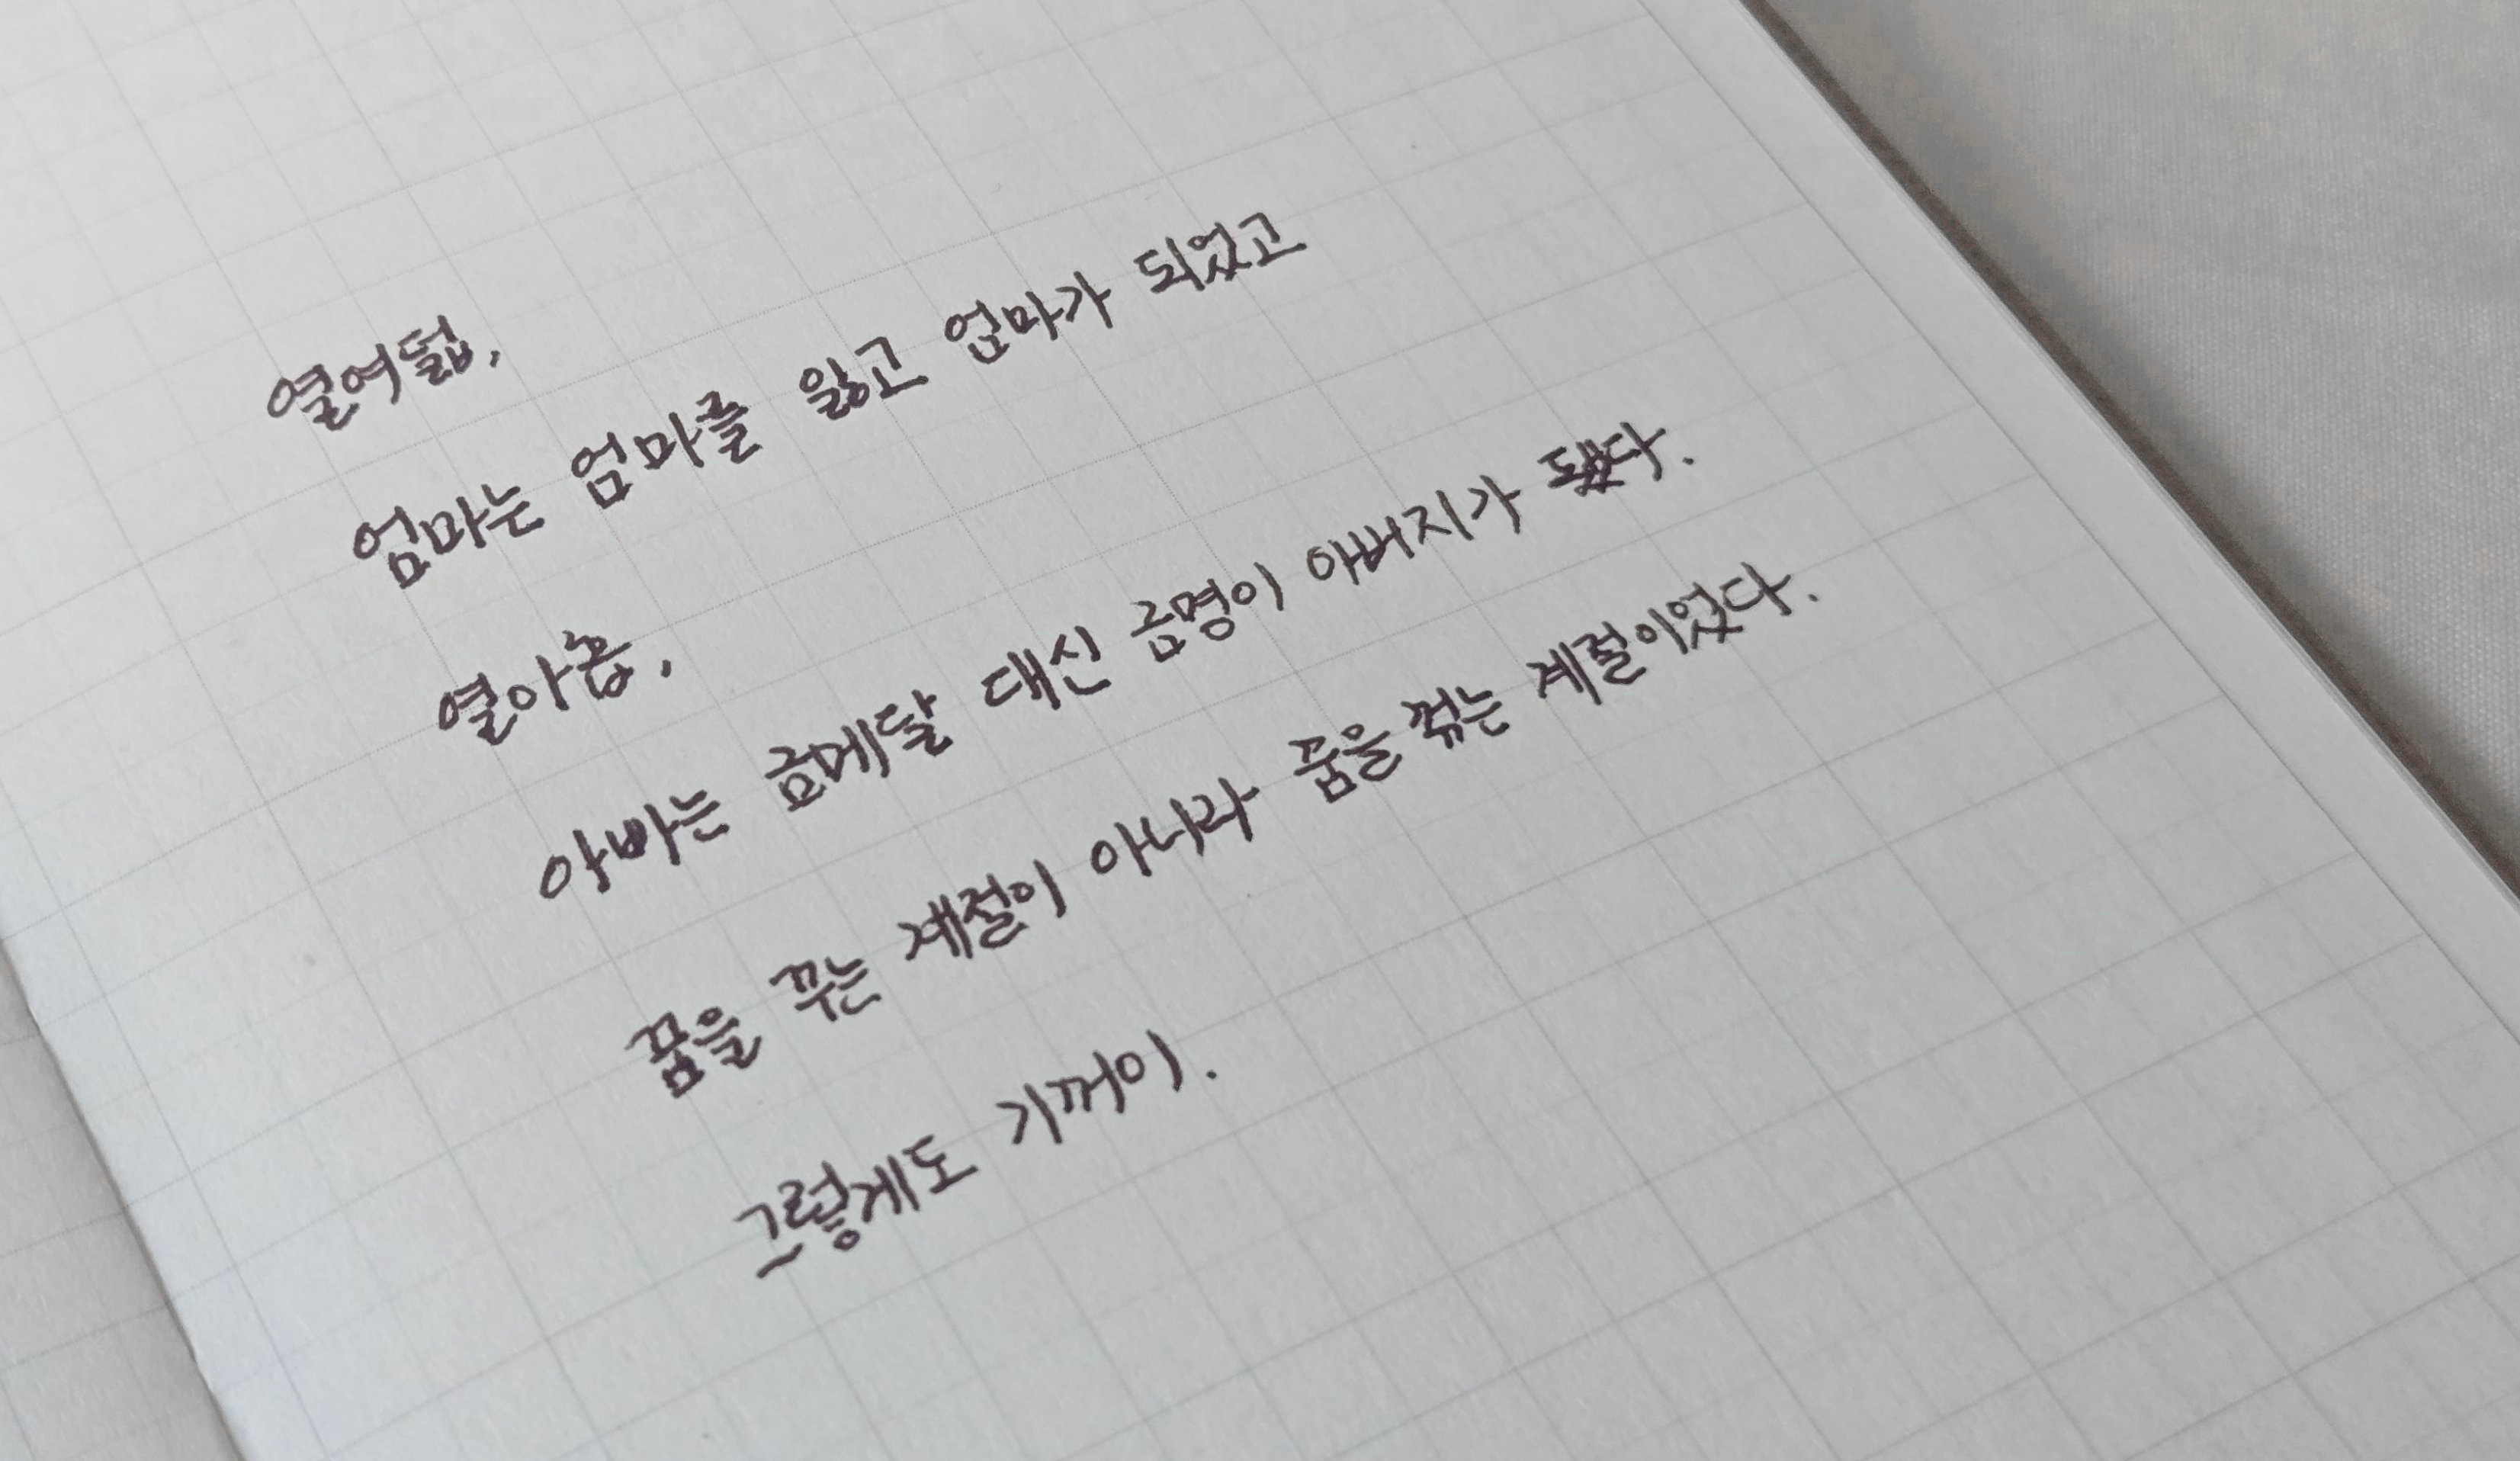 열여덟,
엄마는 엄마를 잃고 엄마가 되었고
열아홉,
아빠는 금메달 대신 금명이 아버지가 됐다.
꿈을 꾸는 계절이 아니라 꿈을 꺾는 계절이었다.
그렇게도 기꺼이.